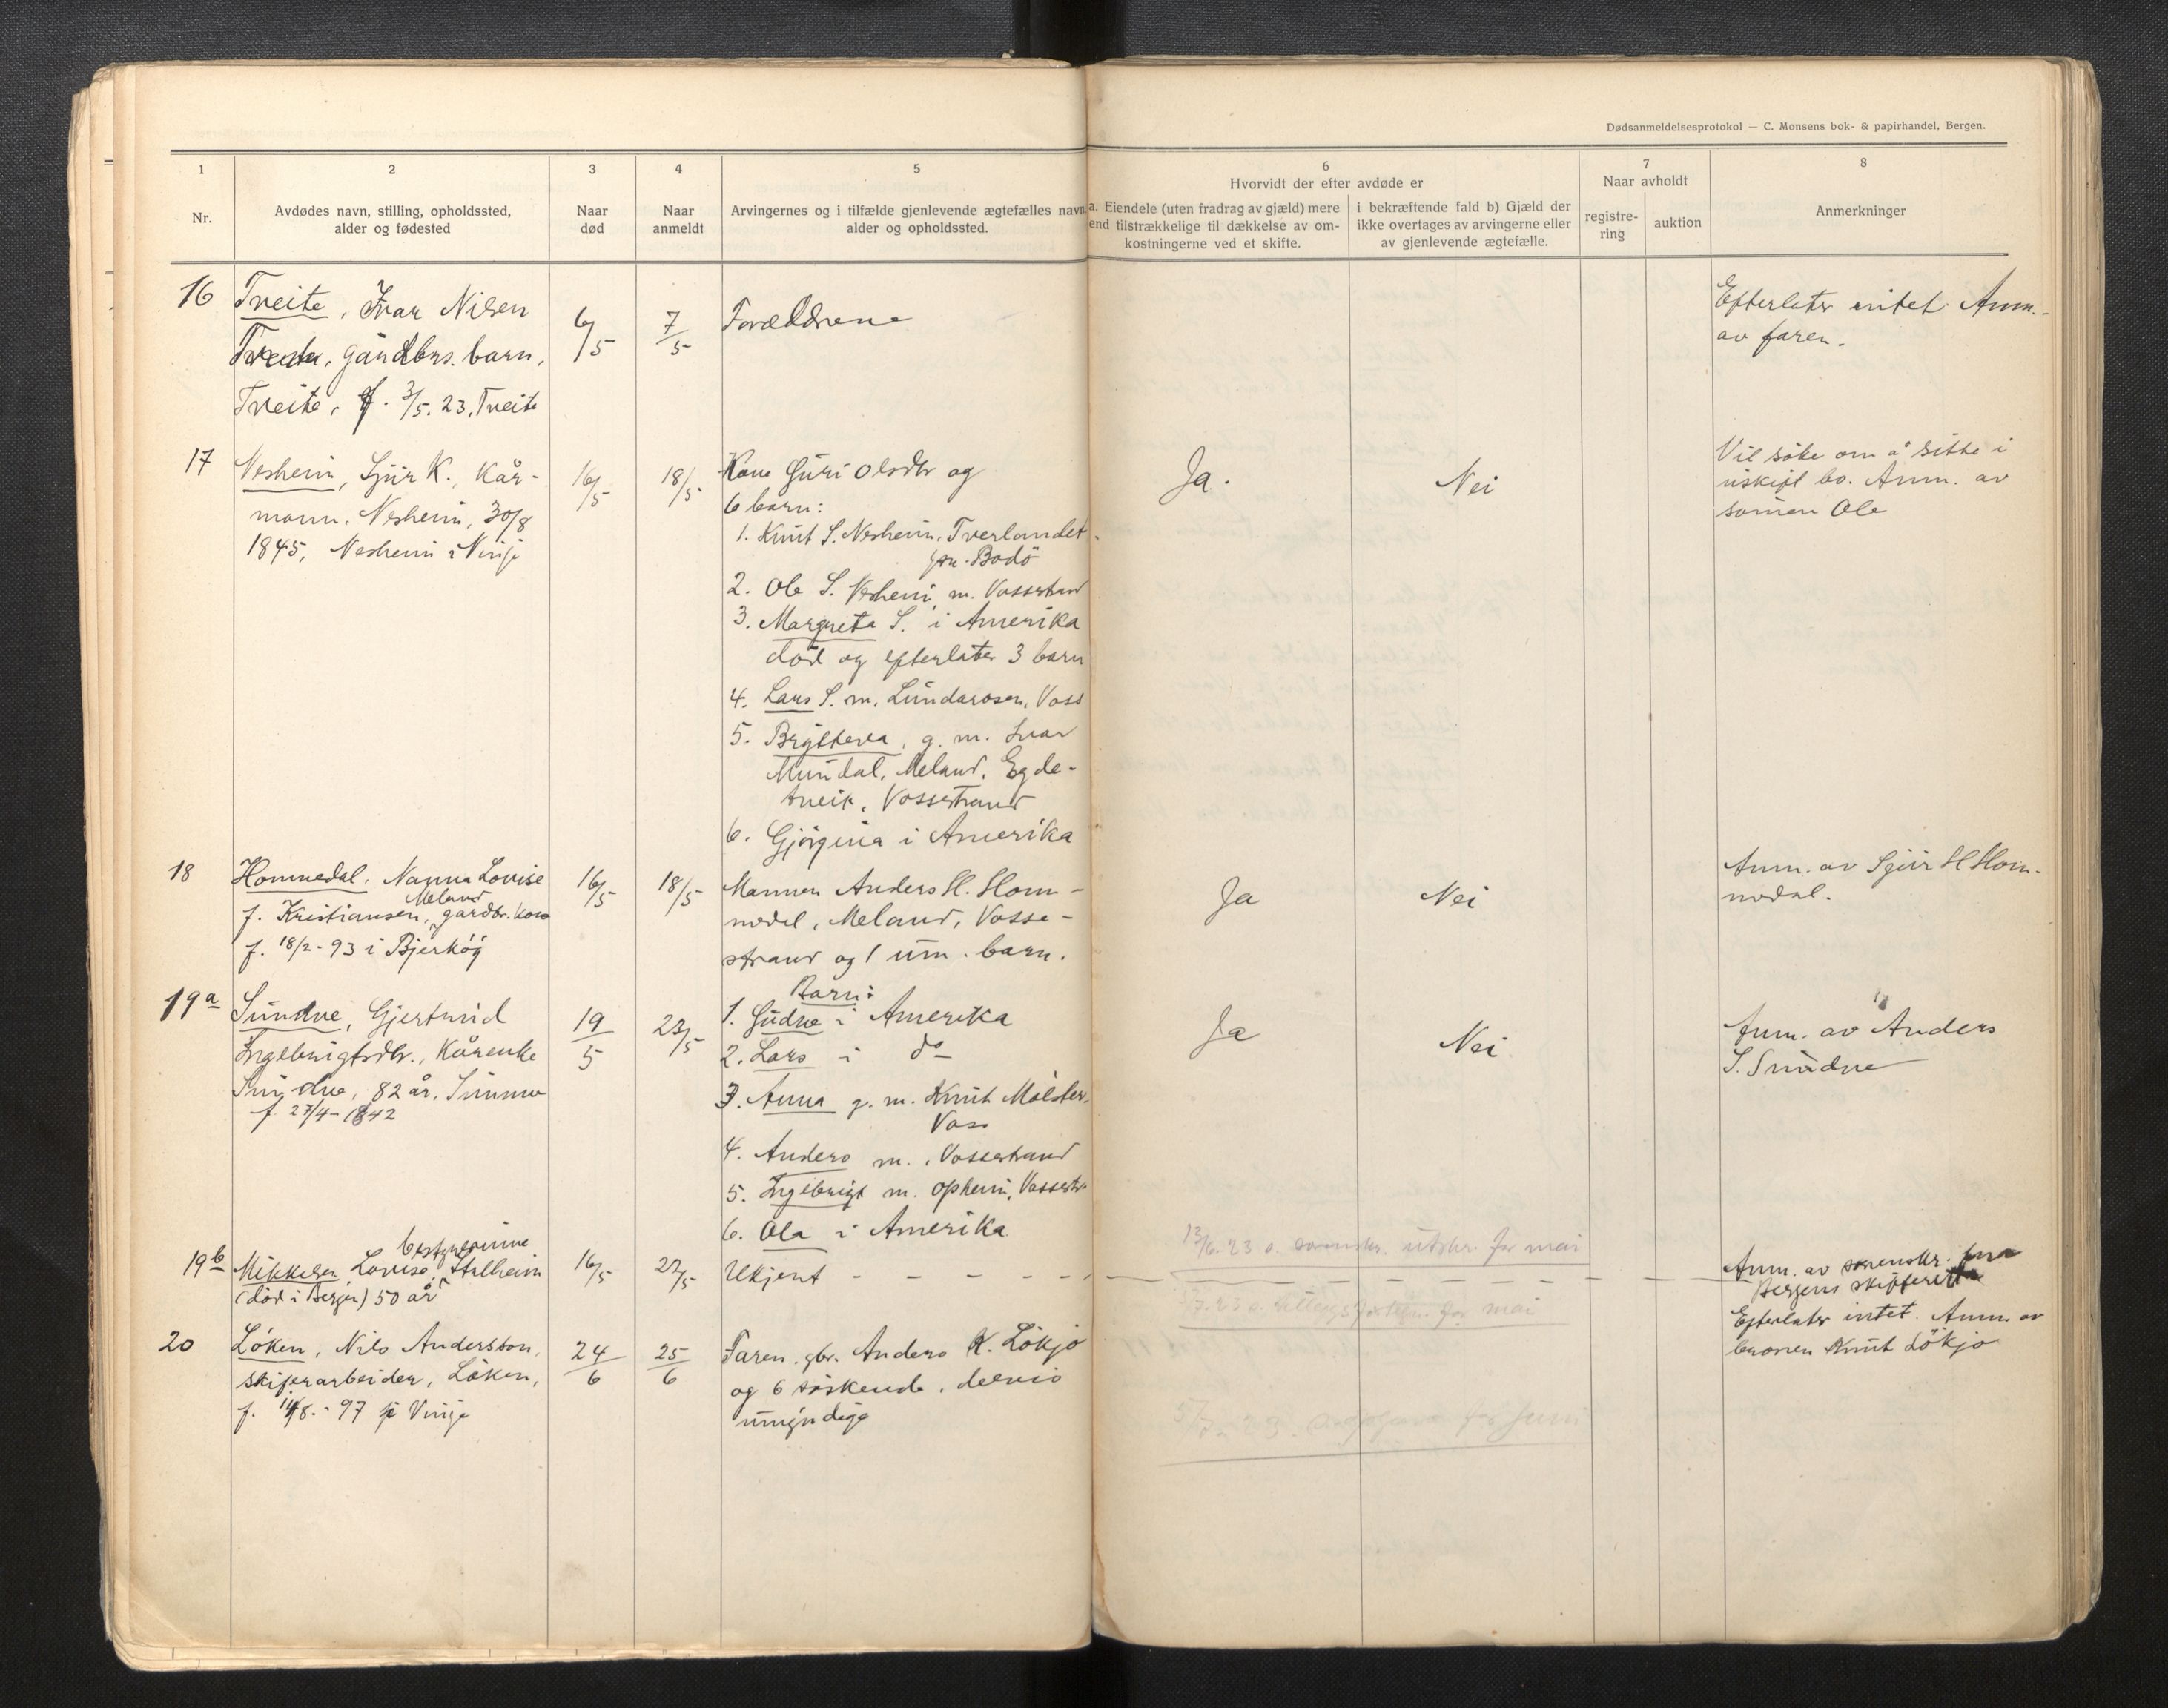 Dødsanmeldelsesprotokol — C. Monsens bok- & papirhandel, Bergen.
1
2
3
4
5
6
7
8
Nr.
Avdødes navn, stilling, opholdssted,
alder og fødested
Naar
død
Naar
anmeldt
Arvingernes og i tilfælde gjenlevende ægtefælles navn
alder og opholdssted.
Hvorvidt der efter avdøde er
a. Eiendele (uten fradrag av gjæld) mere
end tilstrækkelige til dækkelse av om-
kostningerne ved et skifte.
i bekræftende fald b) Gjæld der
ikke overtages av arvingerne eller
av gjenlevende ægtefælle.
Naar avholdt
registre-
ring
auktion
Anmerkninger
16
Tveite, Ivar Nilsen
gårdbrs. barn,
Tveite, f. 3/5. 23, Tveite
6/5
7/5
Forældrene
Efterlater intet. Anm.
av faren.
17
Nesheim, Sjur K., Kår-
mann, Nesheim, 30/8
1845, Nesheim i Vinje
16/5
18/5
Kone Guri Olsdtr og
6 barn:
1. Knut S. Nesheim, Tverlandet
pr. Bodö
2. Ole S. Nesheim, m. Vossestrand
3. Margreta S. i Amerika
död og efterlater 3 barn
4. Lars S. m. Lundarosen, Voss
5. Brytteva, g. m. Ivar
Mundal, Meland, Egde-
tveit, Vossestrand
6. Gjörgina i Amerika
Ja.
Nei
Vil söke om å sitte i
uskift bo. Anm. av
sönen Ole
18
Hommedal, Nanna Lovise
f. Kristiansen, gårdbr. kone
Meland
f. 18/2-93 i Bjerköy
16/5
18/5
Mannen Anders H. Hom-
medal, Meland, Vosse-
strand og 1 um. barn.
Ja
Nei
Anm. av Sjur H Hom-
medal.
19a
Sundve, Gjertrud
Ingebrigtsdtr., Kårenke
Sundve, 82 år,
f. 27/4-1842
19/5
23/5
Barn:
1. Gudve i Amerika
2. Lars i do
3. Anna g. m. Knut Mölster,
Voss
4. Anders m., Vossestrand
5. Ingebrigt m. Opheim, Vossestr.
6. Ola i Amerika
Ja
Nei
Anm. av Anders
S. Sundve
13/6.23 s. utskr. for mai
19b
bestyrerinne
Mikkelsen Lovise, Stalheim
(död i Bergen) 50 år
16/5
22/5
Ukjent - - - - -
Anm. av sorenskr. fra
Bergens skifterett
for mai
20
Löken, Nils Andersson,
skiferarbeider, Löken,
f. 14/8.-97 i Vinje
24/6
25/6
Faren, gbr. Anders K. Lökjo
og 6 söskende, delvis
umyndige
Efterlater intet. Anm. av
broren Knut Lökjo
for Juni